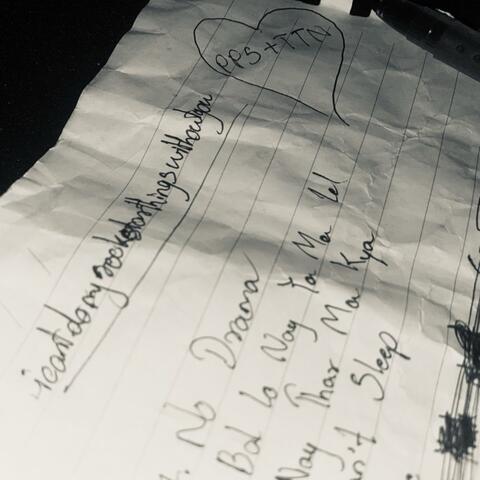 PPS + TTN
icantdomyrockstarthingswithoutyou
No Drama
Bal Lo Nay Ya Ma Lel
Nay Thar Ma Kya
Sleep